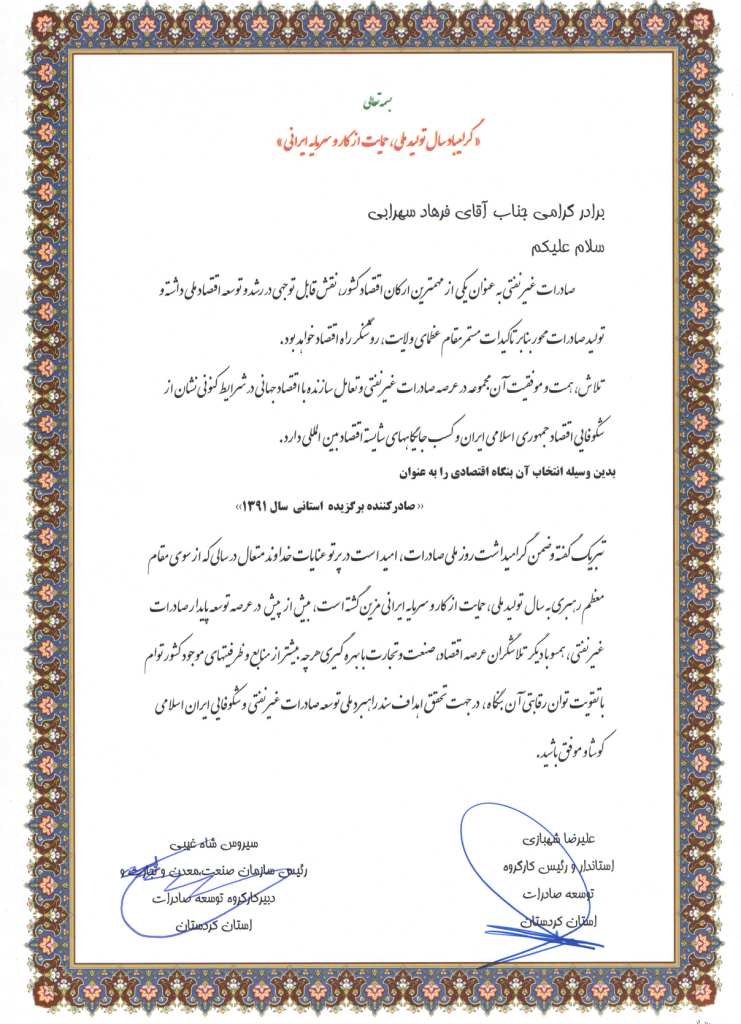 بسمه تعالی
«گرامیباد سال تولید ملی، حمایت از کار و سرمایه ایرانی»
برادر گرامی جناب آقای فرهاد سهرابی
سلام علیکم
صادرات غیرنفتی به عنوان یکی از مهمترین ارکان اقتصاد کشور، نقش قابل توجهی در رشد و توسعه اقتصاد ملی داشته و
تولید صادرات محور بنابر تاکیدات مستمر مقام عظمای ولایت، روشنگر راه اقتصاد خواهد بود.
تلاش، همت و موفقیت آن مجموعه در عرصه صادرات غیرنفتی و تعامل سازنده با اقتصاد جهانی در شرایط کنونی نشان از
شکوفایی اقتصاد جمهوری اسلامی ایران و کسب جایگاههای شایسته اقتصاد بین المللی دارد.
بدین وسیله انتخاب آن بنگاه اقتصادی را به عنوان
«صادرکننده برگزیده استانی سال ۱۳۹۱»
تبریک گفته و ضمن گرامیداشت روز ملی صادرات، امید است در پرتو عنایات خداوند متعال در سالی که از سوی مقام
معظم رهبری به سال تولید ملی، حمایت از کار و سرمایه ایرانی مزین گشته است، بیش از پیش در عرصه توسعه پایدار صادرات
غیرنفتی، همسو با دیگر تلاشگران عرصه اقتصاد، صنعت و تجارت با بهره گیری هرچه بیشتر از منابع و ظرفیتهای موجود کشور توام
با تقویت توان رقابتی آن بنگاه، در جهت تحقق اهداف سند راهبرد ملی توسعه صادرات غیرنفتی و شکوفایی ایران اسلامی
کوشا و موفق باشید.
علیرضا شهبازی
استاندار و رئیس کارگروه
توسعه صادرات
استان کردستان
سیروس شاه غیبی
رئیس سازمان صنعت،معدن و تجارت و
دبیرکارگروه توسعه صادرات
استان کردستان